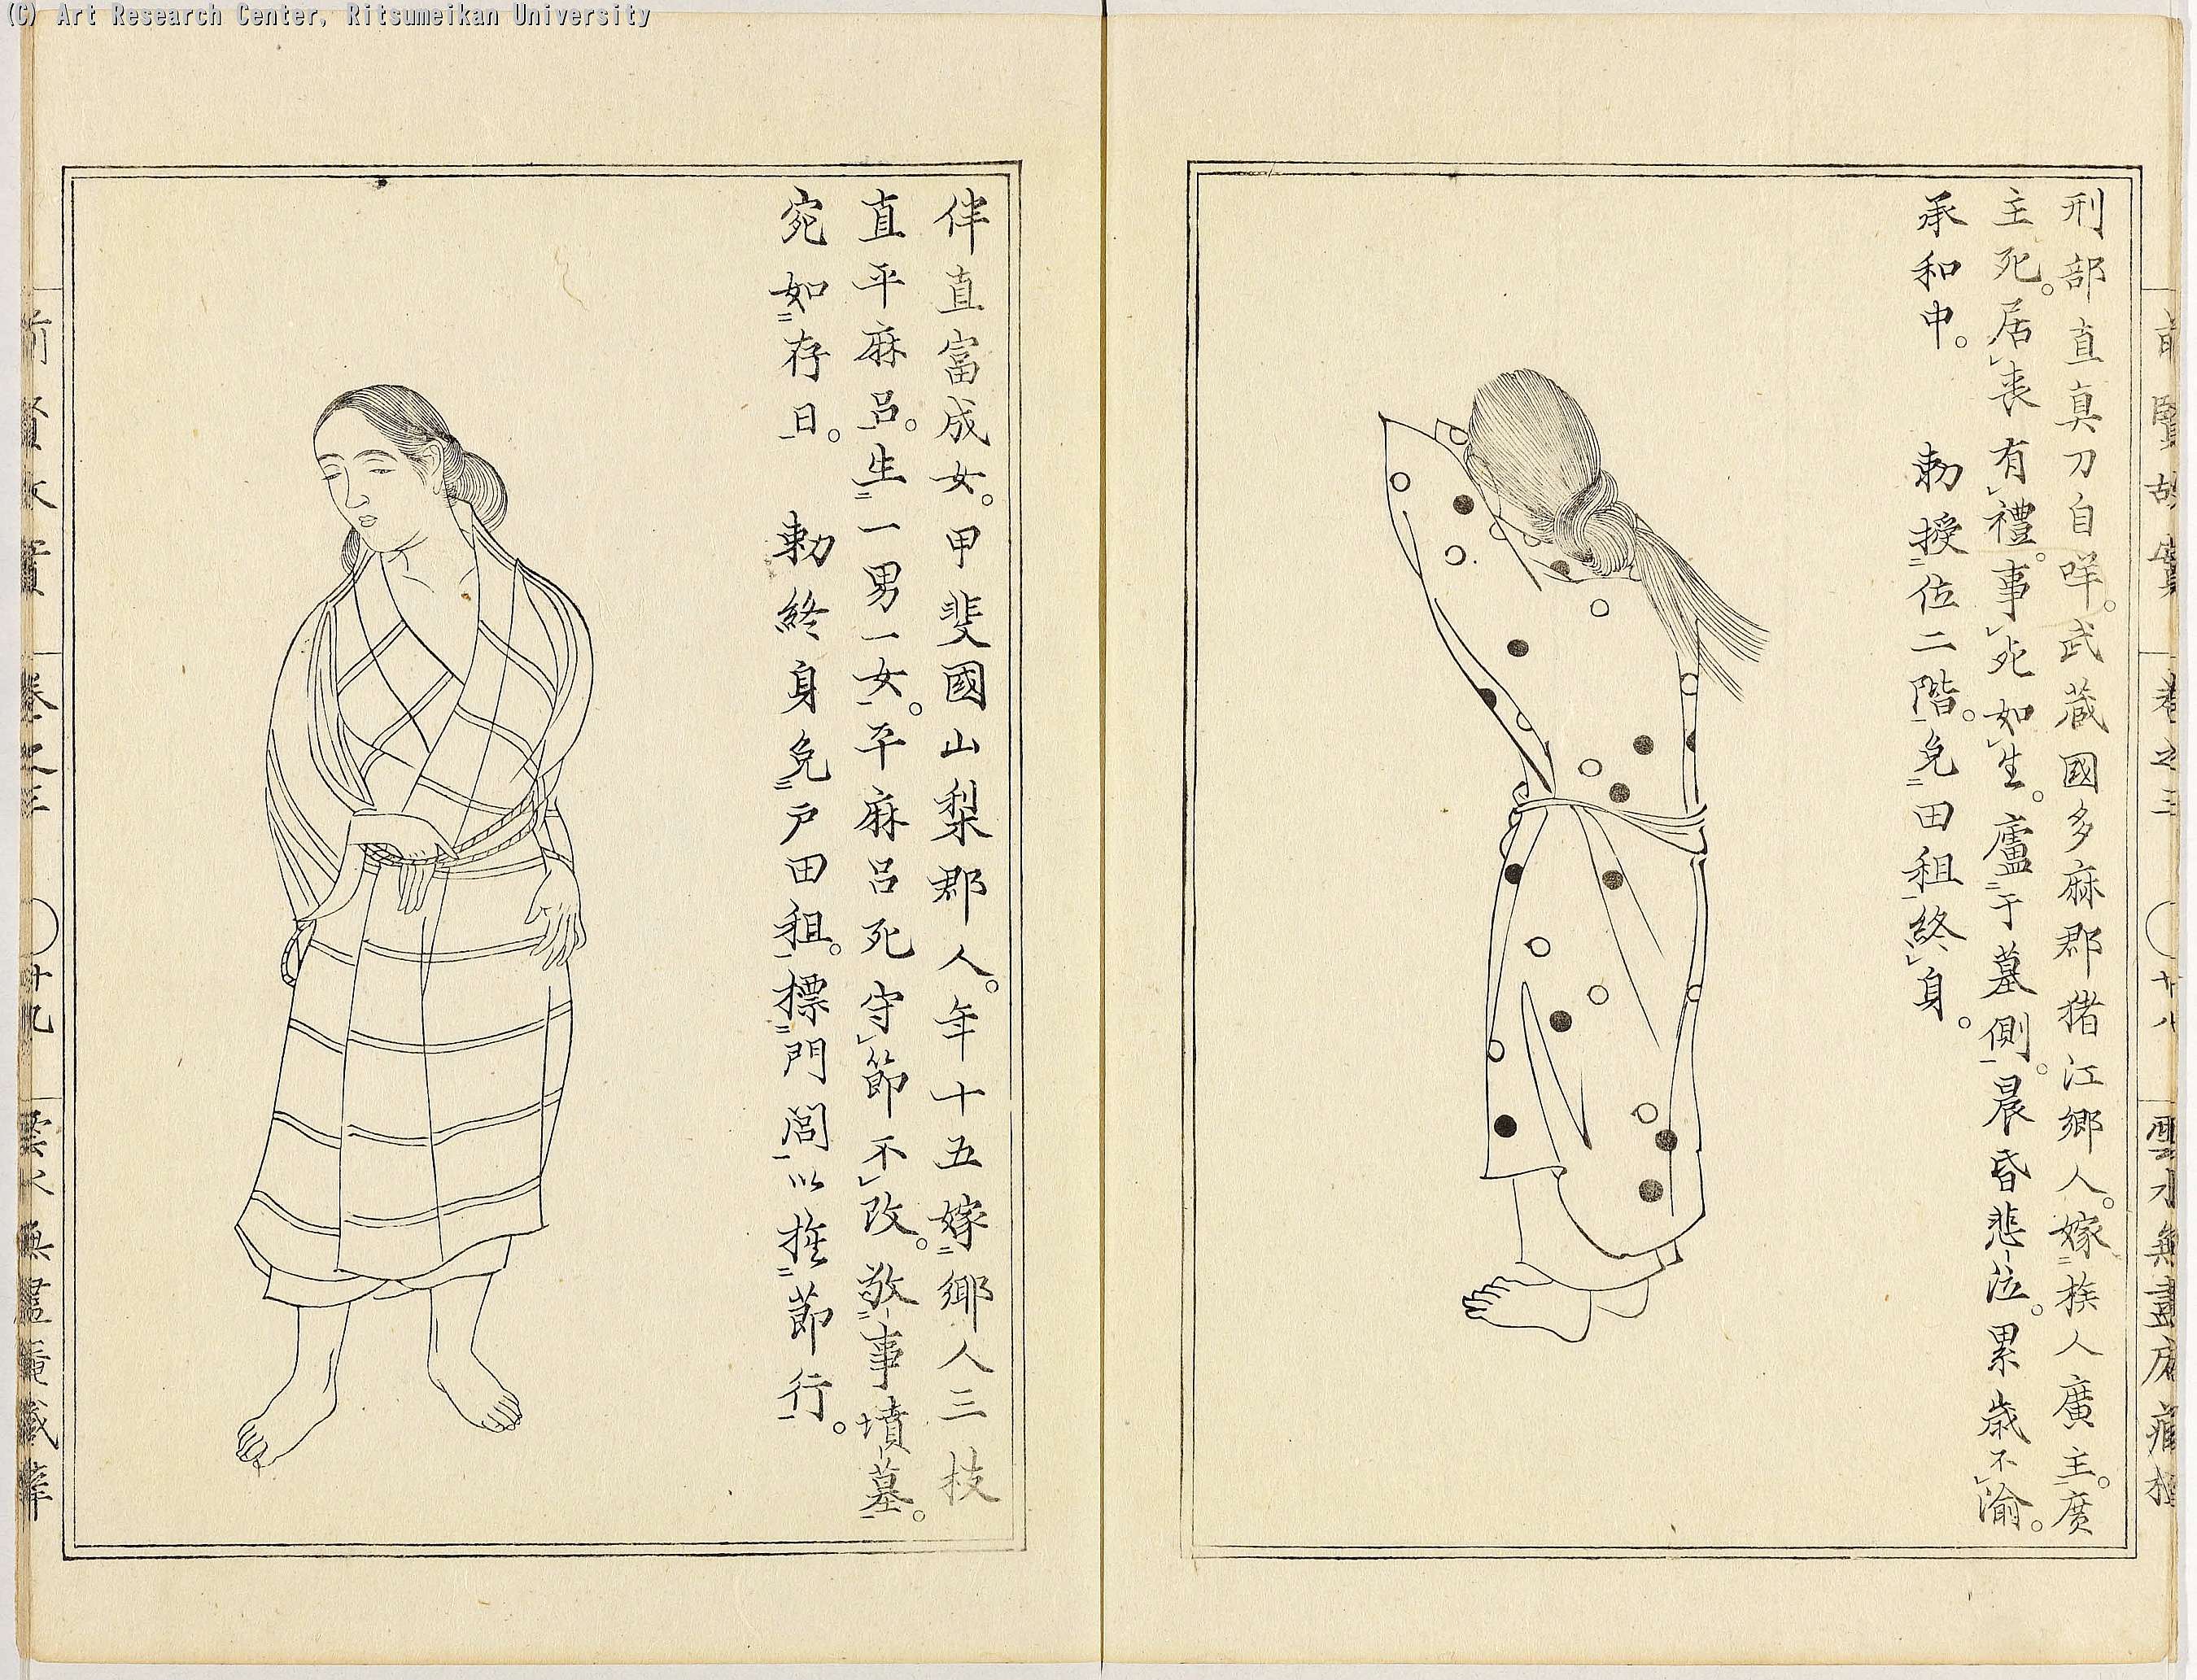 (C) Art Research Center, Ritsumeikan University
刑部直真刀自咩。武蔵國多麻郡猪江郷人。嫁族人廣主。廣
主死。居喪有禮。事死如生。廬于墓側。晨昏悲泣。累歳不渝。
承和中。　勅授位二階。免田租終身。
伴直富成女。甲斐國山梨郡人。年十五嫁郷人三枝
直平麻呂。生一男一女。平麻呂死守節不改。敬事墳墓。
宛如存日。　勅終身免戸田租。標門閭以旌節行。
前賢故實　巻之三　廿八　雲水無盡庵藏
前賢故實　巻之三　廿九　雲水無盡庵藏